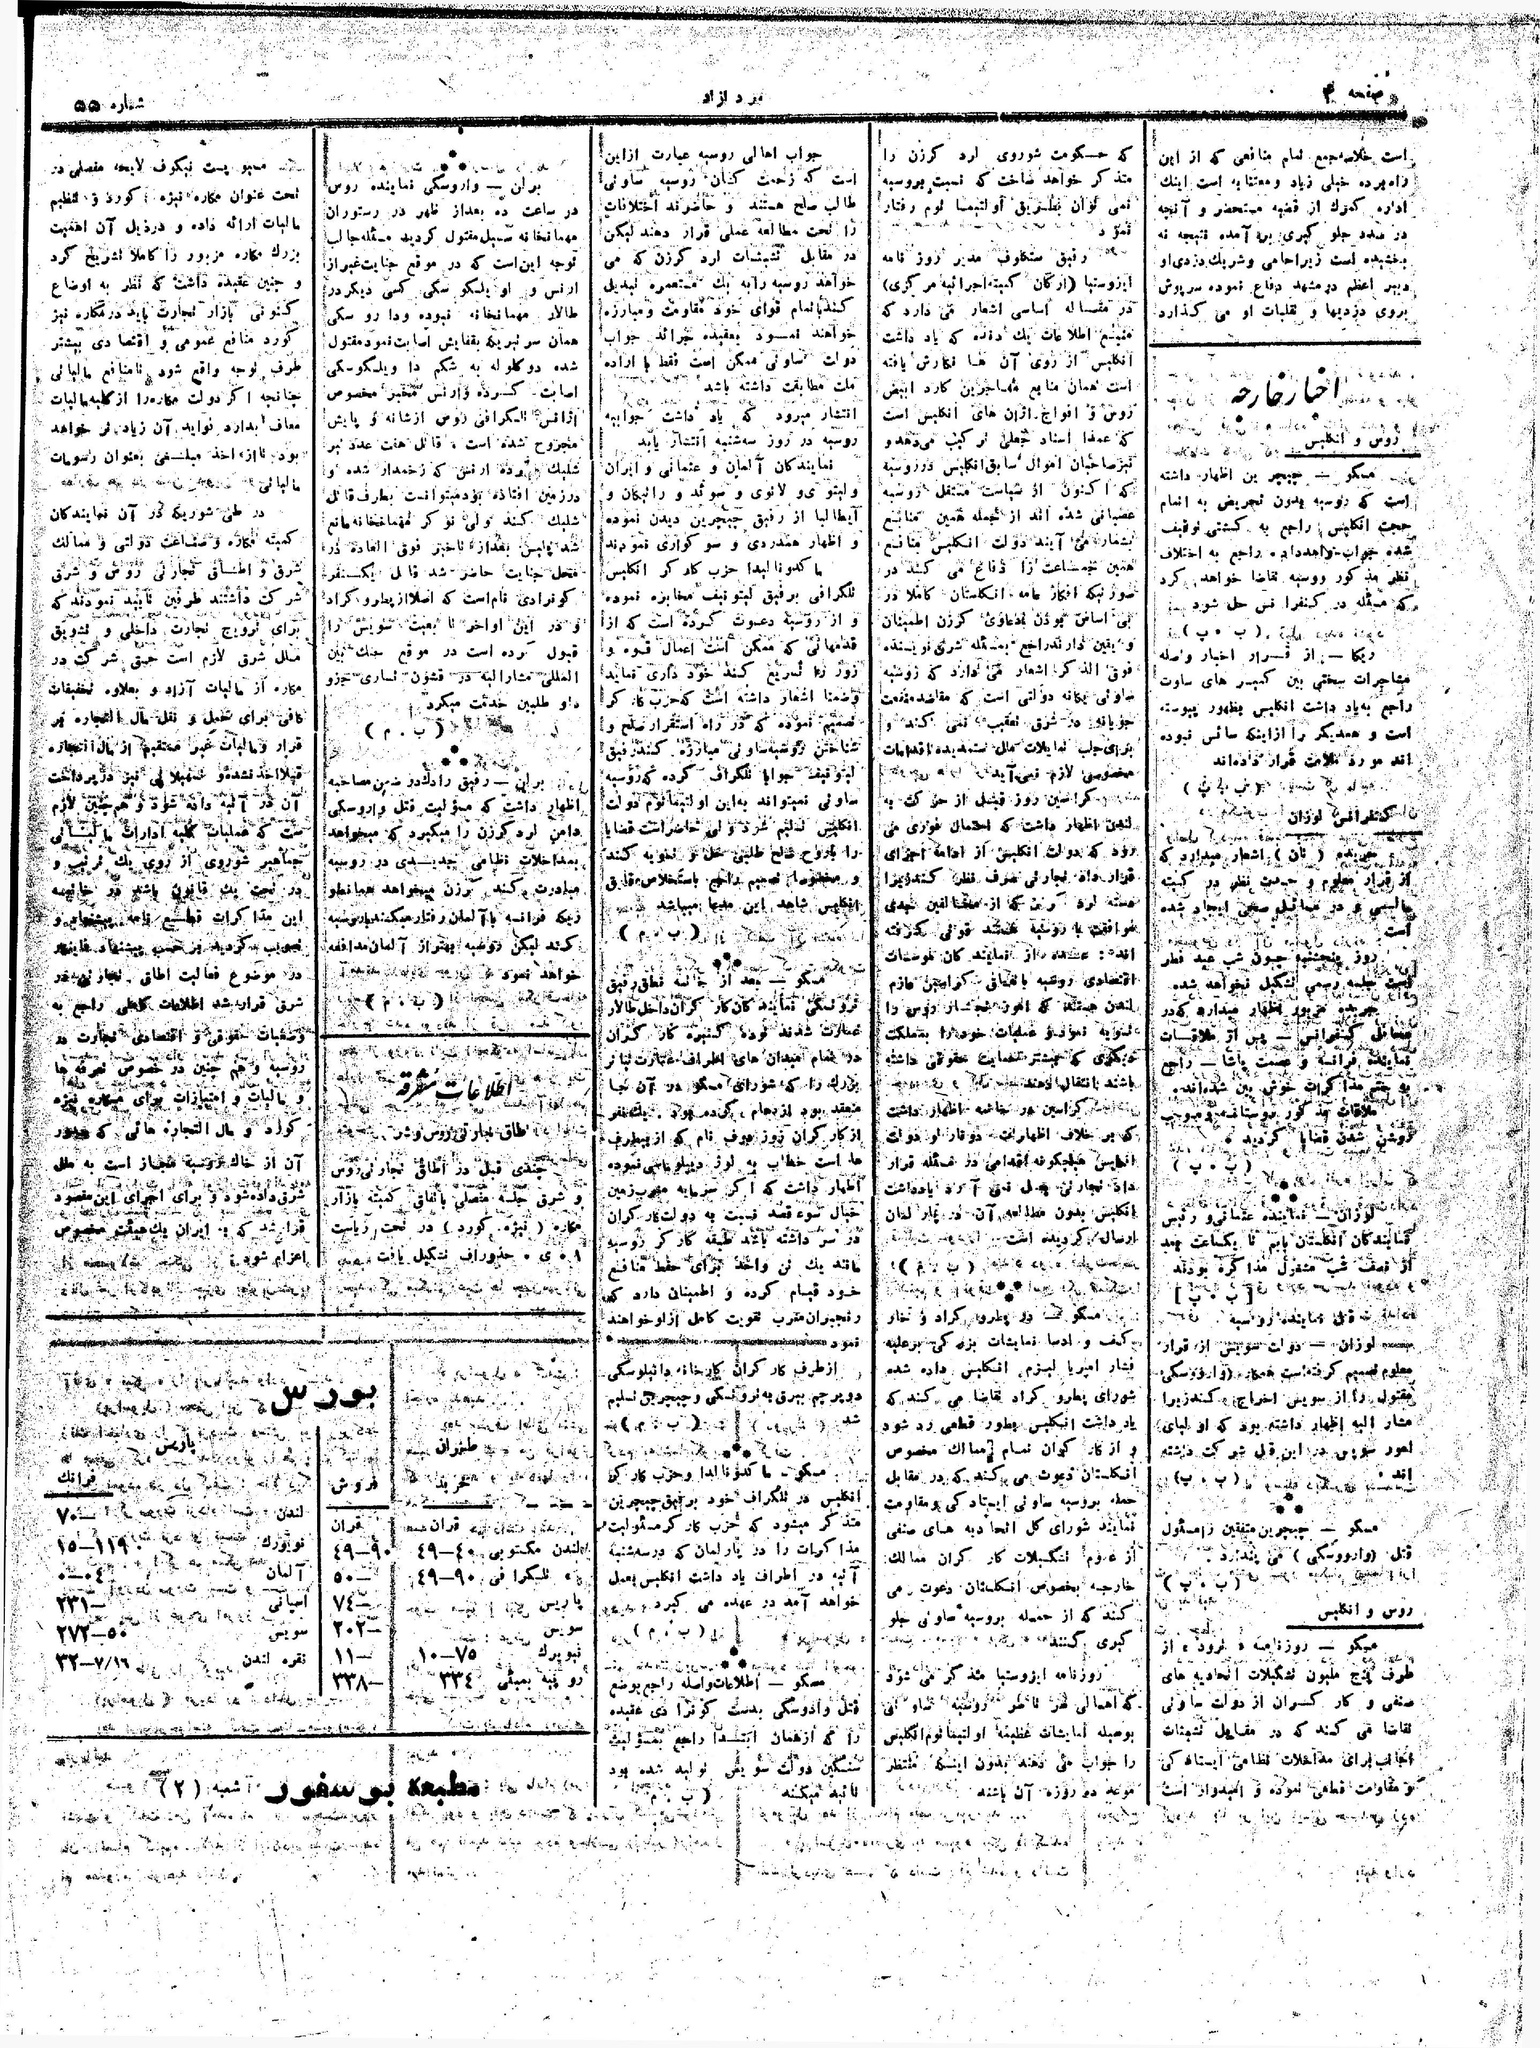 صفحه ۴
مرد آزاد
شماره ۵۵
است خلاصه جمع تمام منافعی که از این
راه برده خیلی زیاد و معتنابه است اینك
اداره گمرك از قضیه مستحضر و آنچه
در صدد جلو گیری بر آمده نتیجه نه
بخشیده است زیرا حامی و شریك دزدی او
دبیر اعظم در مشهد دفاع نموده سرپوش
بروی دزدیها و تقلبات او می گذارد
اخبار خارجه
روس و انگلیس
مسکو — چیچرین اظهار داشته
است که روسیه بدون تعریض به اتمام
حجت انگلیس راجع به کشتی توقیف
شده جواب خواهد داد راجع به اختلاف
نظر مذکور روسیه تقاضا خواهد کرد
که مسئله در کنفرانس حل شود
(ب . پ)
ریگا — از قرار اخبار واصله
مشاجرات سختی بین کمیسر های ساوت
راجع به یاد داشت انگلیس بظهور پیوسته
است و همدیگر را از اینکه سائس نبوده
اند مورد ملامت قرار داده اند
(ب . پ)
کنفرانس لوزان
جریده (تان) اشعار میدارد که
از قرار معلوم و حدت نظر در کمیته
مالیسی و در مسائل صعبی ایجاد شده
است
روز پنجشنبه چون شب عید فطر
است جلسه رسمی تشکیل نخواهد شد.
جریده مزبور اظهار میدارد که در
محافل کنفرانس — پس از ملاقات
نماینده فرانسه و عصمت پاشا — راجع
به ختم مذاکرات خوش بین شده اند.
ملاقات مذکور دوستانه و موجب
روشن شدن قضایا گردید .
(ب . پ)
لوزان — نماینده عثمانی و رئیس
نمایندگان انگلستان باهم تا یکساعت بعد
از نصف شب مشغول مذاکره بودند
[ب . پ]
قتل نماینده روسیه
لوزان — دولت سویس از قرار
معلوم تصمیم گرفته است همکار (واروسکی)
مقتول را از سویس اخراج کند زیرا
مشار الیه اظهار داشته بود که اولیای
امور سویس در این قتل شرکت داشته
اند . (ب . پ)
مسکو — چیچرین متفقین را مسئول
قتل (واروسکی) می پندارد .
(ب . پ)
روس و انگلیس
مسکو — روزنامه « پرودا » از
طرف پنج ملیون تشکیلات اتحادیه های
صنفی و کار گران از دولت ساوتی
تقاضا می کنند که در مقابل تشبثات
اجانب برای مداخلات نظامی ایستادگی
و مقاومت قطعی نموده و امیدوار است
که حکومت شوروی لرد کرزن را
متذکر خواهد ساخت که نسبت بروسیه
نمی توان بطریق اولتیما توم رفتار
نمود
رفیق ستکلوف مدیر روز نامه
ایزوستیا (ارگان کمیته اجرائیه مرکزی)
در مقساله اساسی اشعار می دارد که
منبع اطلاعات یك دفعه که یاد داشت
انگلیس از روی آن ها نگارش یافته
است همان منابع مهاجرین گارد ابیض
روس و افواج اژان های انگلیس است
که عمدا اسناد جعلی ترکیب می دهد و
نیز صاحبان اموال سابق انگلیس در روسیه
که اکنون از سیاست مستقل روسیه
عصبانی شده اند از جمله همین منابع
بشمار می آیند دولت انگلیس منافع
همین جماعت را دفاع می کند در
صورتیکه افکار عامه انگلستان کاملا در
بی اساس بودن دعاوی کرزن اطمینان
و یقین دارند راجع بمسئله شرق نویسنده
فوق الذکر اشعار می دارد که روسیه
ساوتی یگانه دولتی است که مقاصد منفعت
جویانه در شرق تعقیب نمی کند و
برای جلب تمایلات ملل ستمدیده اقدامات
مخصوصی لازم نمی آید
کراسین روز قبل از حرکت به
لندن اظهار داشت که احتمال فوری می
رود که دولت انگلیس از ادامه اجرای
قرار داد تجارتی صرف نظر کند زیرا
دسته لرد کرزن که از مخالفین جدی
موافقت با روسیه هستند قوتی گرفته
اند . عده از نمایندگان موسسات
اقتصادی روسیه باتفاق کراسین عازم
لندن هستند که امور تجار روس را
تسویه نمود و عملیات خود را بمملکت
دیگری که بیشتر ضمانت حقوقی داشته
باشند انتقال دهند
کراسین در خاتمه اظهار داشت
که بر خلاف اظهارات دوباره او دولت
انگلیس هیچگونه اقدامی در مسئله قرار
داد تجارتی بعمل نمی آورد یادداشت
انگلیس بدون مطالعه آن در پارلمان
ارسال گردیده است
(ب . م)
مسکو — در پطرو گراد و خار
کف و ادسا نمایشات بزرگی بر علیه
فشار امپریا لیزم انگلیس داده شده
شورای پطرو گراد تقاضا می کند که
یاد داشت انگلیس بطور قطعی رد شود
و از کار گران تمام ممالك مخصوص
انگلستان دعوت می کند که در مقابل
حمله بروسیه ساوتی ایستاد گی و مقاومت
نمایند شورای کل اتحادیه های صنفی
از عموم تشکیلات کار گران ممالك
خارجه بخصوص انگلستان دعوت می
کنند که از حمله بروسیه ساوتی جلو
گیری کنند
روزنامه ایزوستیا متذکر می شود
که اهالی هر ناظر روسیه ساوتی
بوسیله نمایشات عظیمه اولتیماتوم انگلیس
را جواب می دهند بدون اینکه منتظر
موعد ده روزه آن باشند
جواب اهالی روسیه عبارت از این
است که زحمت کشان روسیه ساوتی
طالب صلح هستند و حاضرند اختلافات
را تحت مطالعه عملی قرار دهند لیکن
در مقابل تشبثات لرد کرزن که می
خواهد روسیه را به یك مستعمره تبدیل
کند باتمام قوای خود مقاومت و مبارزه
خواهند نمود بعقیده جرائد جواب
دولت ساوتی ممکن است فقط با اراده
ملت مطابقت داشته باشد
انتشار میرود که یاد داشت جوابیه
روسیه در روز سه شنبه انتشار یابد
نمایندگان آلمان و عثمانی و ایران
و لیتوی و لاتوی و سوئد و واتیکان و
ایطالیا از رفیق چیچرین دیدن نموده
و اظهار همدردی و سوگواری نمودند
ماکدونالد با حزب کار گر انگلیس
تلگرافی برفیق لیتونیف مخابره نموده
و از روسیه دعوت کرده است که از
قدمهائی که ممکن است اعمال قوه و
زور را تسریع کند خود داری نماید
و ضمنا اشعار داشته است که حزب کار گر
تصمیم نموده که در راه استقرار صلح و
شناختن روسیه ساوتی مبارزه کند رفیق
لیتونیف جوابا تلگراف کرده که روسیه
ساوتی نمیتواند به این اولتیماتوم دولت
انگلیس تسلیم شود ولی حاضر است قضایا
را با روح صلح طلبی حل و تسویه کند
و مخصوصا تصمیم راجع باستخلاص قایق
انگلیس شاهد این مدعا میباشد
(ب . م)
مسکو — بعد از خاتمه نطق رفیق
تروتسکی نمایندگان کار گران داخل طالار
عمارت شدند توده کثیره کار گران
در تمام میدان های اطراف عمارت تیاتر
بزرك را که شورای مسکو در آن جا
منعقد بود ازدحام کرده بود . یك نفر
از کار گران
ها است خطاب به لرد
اظهار داشت که اگر سرمایه مغرب زمین
خیال سوء قصد نسبت به دولت کار گران
در سر داشته باشد طبقه کار گر روسیه
مانند یك تن واحد برای حفظ منافع
خود قیام کرده و اطمینان دارد که
رنجبران مغرب تقویت کامل از او خواهند
نمود
از طرف کار گران کارخانه دانیلوسکی
دو پرچم بیرق به تروتسکی و چیچرین تسلیم
شد (ب . م)
مسکو — ماکدونالد و حزب کار گر
انگلیس در تلگراف خود برفیق چیچرین
متذکر میشود که حزب کار گر مسئولیت
مذاکرات را در پارلمان که در سه شنبه
آتیه در اطراف یاد داشت انگلیس بعمل
خواهد آمد در عهده می گیرد
(ب . م)
مسکو — اطلاعات واصله راجع بوضع
قتل وادوسکی بدست کونرادی عقیده
را که از همان ابتدا راجع بمسئولیت
سنگین دولت سویس تولید شده بود
تائید میکند (ب . م)
برلن — واروسکی نماینده روس
در ساعت ده بعد از ظهر در رستوران
مهمانخانه سسیل مقتول گردید مسئله جالب
توجه این است که در موقع جنایت غیر از
ارنس و دیلیکوسکی کسی دیگر در
طالار مهمانخانه نبوده وداروسکی
همان سر تیر یکه بقفایش اصابت نمود مقتول
شده دو گلوله به شکم دا ویلکوسکی
اصابت کرده و ارنس مخبر مخصوص
اژانس تلگرافی روس از شانه و پایش
مجروح شده است . قاتل هفت عدد تیر
شلیك کرده ارنس که زخمدار شده و
در زمین افتاده بود میتوانست بطرف قاتل
شلیك کند ولی نوکر مهمانخانه مانع
شد پلیس بعد از تاخیر فوق العاده در
محل جنایت حاضر شد قاتل یکنفر
کونرادی نام است که اصلا از پطروگراد
و در این اواخر تابعیت سویس را
قبول کرده است در موقع جنك بین
المللی مشارالیه در قشون تساری جزو
داو طلبین خدمت میکرد
(ب . م)
برلن — رفیق رادك در ضمن مصاحبه
اظهار داشت که مسؤلیت قتل واروسکی
دامن لرد کرزن را میگیرد که میخواهد
بمداخلات نظامی جدیدی در روسیه
مبادرت کند کرزن میخواهد همانطو
ریکه فرانسه با آلمان رفتار میکند با روسیه
کند لیکن روسیه بهتر از آلمان مدافعه
خواهد نمود
(ب . م)
اطلاعات متفرقه
اطاق تجارتی روس و شرق
چندی قبل در اطاق تجارتی روس
و شرق جلسه مفصلی باتفاق کمیته بازار
مکاره (نیژه گورد) در تحت ریاست
۸ . ی . خدوراف تشکیل یافت
مسیو پست نیکوف لایحه مفصلی در
تحت عنوان مکاره نیژه گورد و تنظیم
مالیات ارائه داده و در ذیل آن اهمیت
بزرك مکاره مزبور را کاملا تشریح کرد
و چنین عقیده داشت که نظر به اوضاع
کنونی بازار تجارت باید در مکاره نیژ
گورد منافع عمومی و اقتصادی بیشتر
طرف توجه واقع شود تا منافع مالیاتی
چنانچه اگر دولت مکاره را از کلیه مالیات
معاف بدارد فواید آن زیاد تر خواهد
بود تا از اخذ مبلغی بعنوان رسومات
مالیاتی
در طی شوریکه در آن نمایندگان
کمیته مکاره و صناعت دولتی و ممالك
شرق و اطاق تجارتی روس و شرق
شرکت داشتند طرفین تأیید نمودند که
برای ترویج تجارت داخلی و تشویق
ملل شرق لازم است حق شرکت در
مکاره از مالیات آزاد و بعلاوه تخفیفات
کافی برای حمل و نقل مال التجاره بر
قرار و مالیات غیر مستقیم از مال التجاره
قبلا اخذ نشده و تسهیلاتی نیز در پرداخت
آن در آتیه داده شود و همچنین لازم
است که عملیات کلیه ادارات مالیاتی
جماهیر شوروی از روی یك ترتیب و
در تحت یك قانون باشد در خاتمه
این مذاکرات قطع نامه پیشنهاد و
تصویب گردید بر حسب پیشنهاد
در موضوع فعالیت اطاق تجارتی در
شرق قرار شد اطلاعات کاملی راجع به
وضعیات حقوقی و اقتصادی تجارت در
روسیه و هم چنین در خصوص تعرفه ها
و مالیات و امتیازات برای مکاره نیژه
گورد و مال التجاره هائی که عبور
آن از خاك روسیه مجاز است به ملل
شرق داده شود و برای اجرای این مقصود
قرار شد که به ایران یك هیئت مخصوص
اعزام شود .
بورس
طهران
خرید فروش
قران قران
لندن مکتوبی ۴۰—۴۹ ۹۰—۴۹
« تلگرافی ۹۰—۴۹ —۵۰
پاریس —۷۴
سویس —۲۰۲
نیویرك ۷۵—۱۰ —۱۱
روپیه بمبئی ۳۳۴ —۳۳۸
پاریس
فرانك
لندن —۷۰
نویورك ۱۱۹—۱۵
آلمان ۰۴—۰
اسپانی —۲۳۱
سویس ۵۰—۲۷۲
نقره لندن ۷/۱۶—۳۲
مطبعه بوسفور
آشعبه (۲)